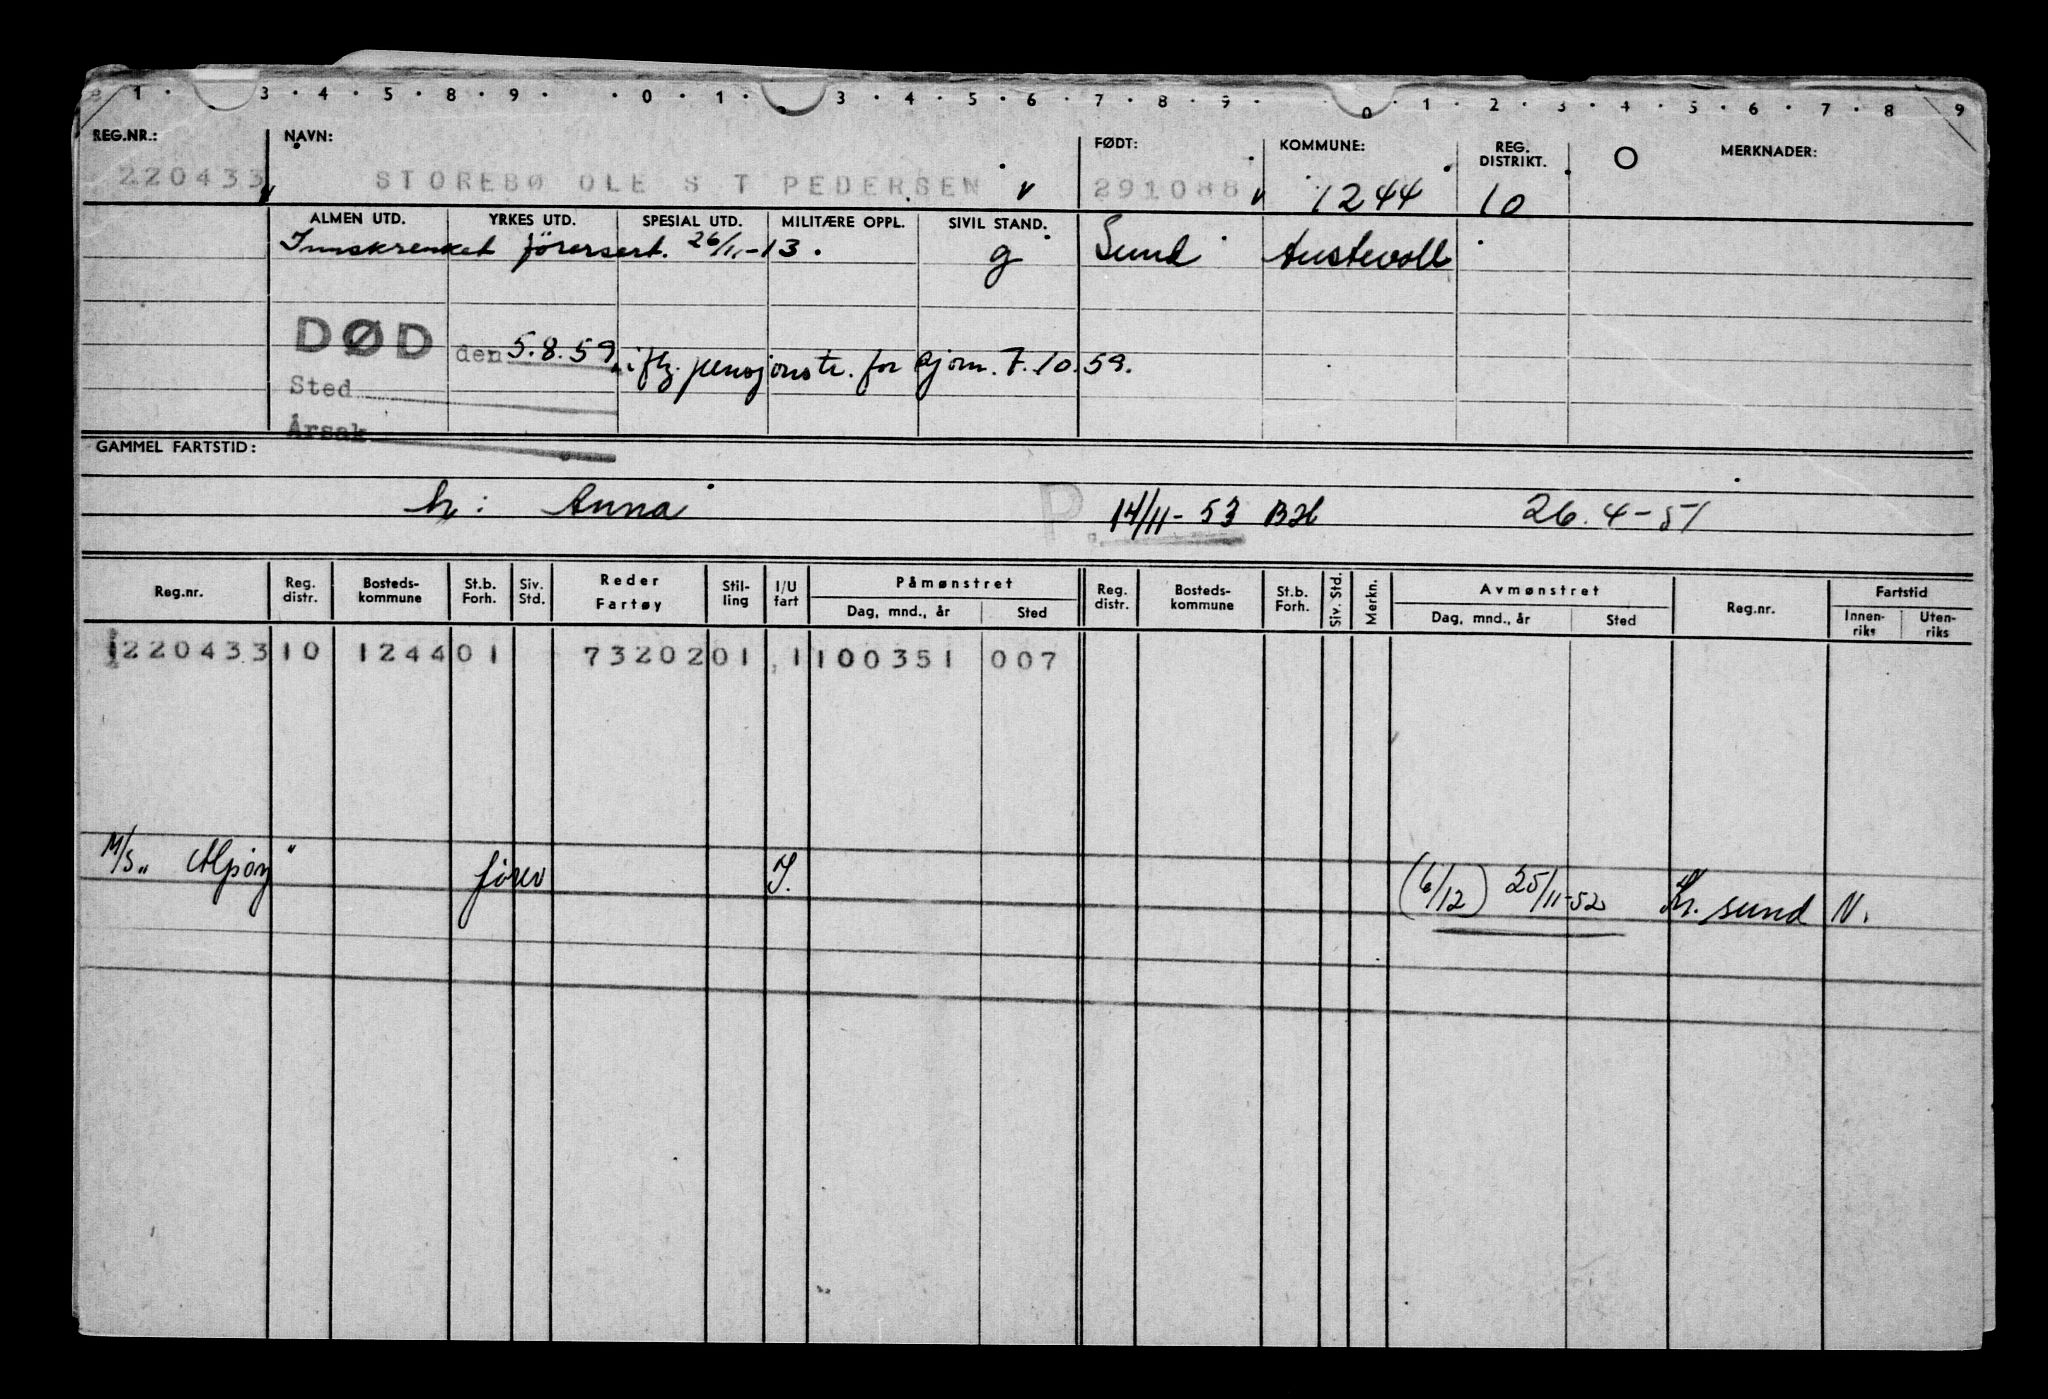 1 · 3 · 4 · 5 · 8 · 9 · · 0 · 1 · 2 3 · 4 · 5 · 6 · 7 · 8 · 9 · 0 · 1 · 2 · 3 · 4 · 5 · 6 · 7 · 8 9
REG.NR.: NAVN: FØDT: KOMMUNE: REG. DISTRIKT. O MERKNADER:
220433 STOREBØ OLE S T PEDERSEN 291088 1244 10
ALMEN UTD. YRKES UTD. SPESIAL UTD. MILITÆRE OPPL. SIVIL STAND.
Innskrenket førersert. 26/11-13. g Sund Austevoll
DØD den 5.8.59 iflg. pensjonstr. for sjøm. 7.10.59.
Sted
Årsak
GAMMEL FARTSTID:
h: Anna P. 14/11-53 BH 26.4-51
Reg.nr. Reg. distr. Bosteds-kommune St.b. Forh. Siv. Std. Reder Fartøy Stil-ling I/U fart Påmønstret Reg. distr. Bosteds-kommune St.b. Forh. Siv. Std. Merkn. Avmønstret Reg.nr. Fartstid
Dag, mnd., år Sted Dag, mnd., år Sted Innen-riks Uten-riks
1220433 10 1244 01 73202 01 1 100351 007
M/S „ Alpøy " fører I. (6/12) 25/11-52 Kr. sund N.